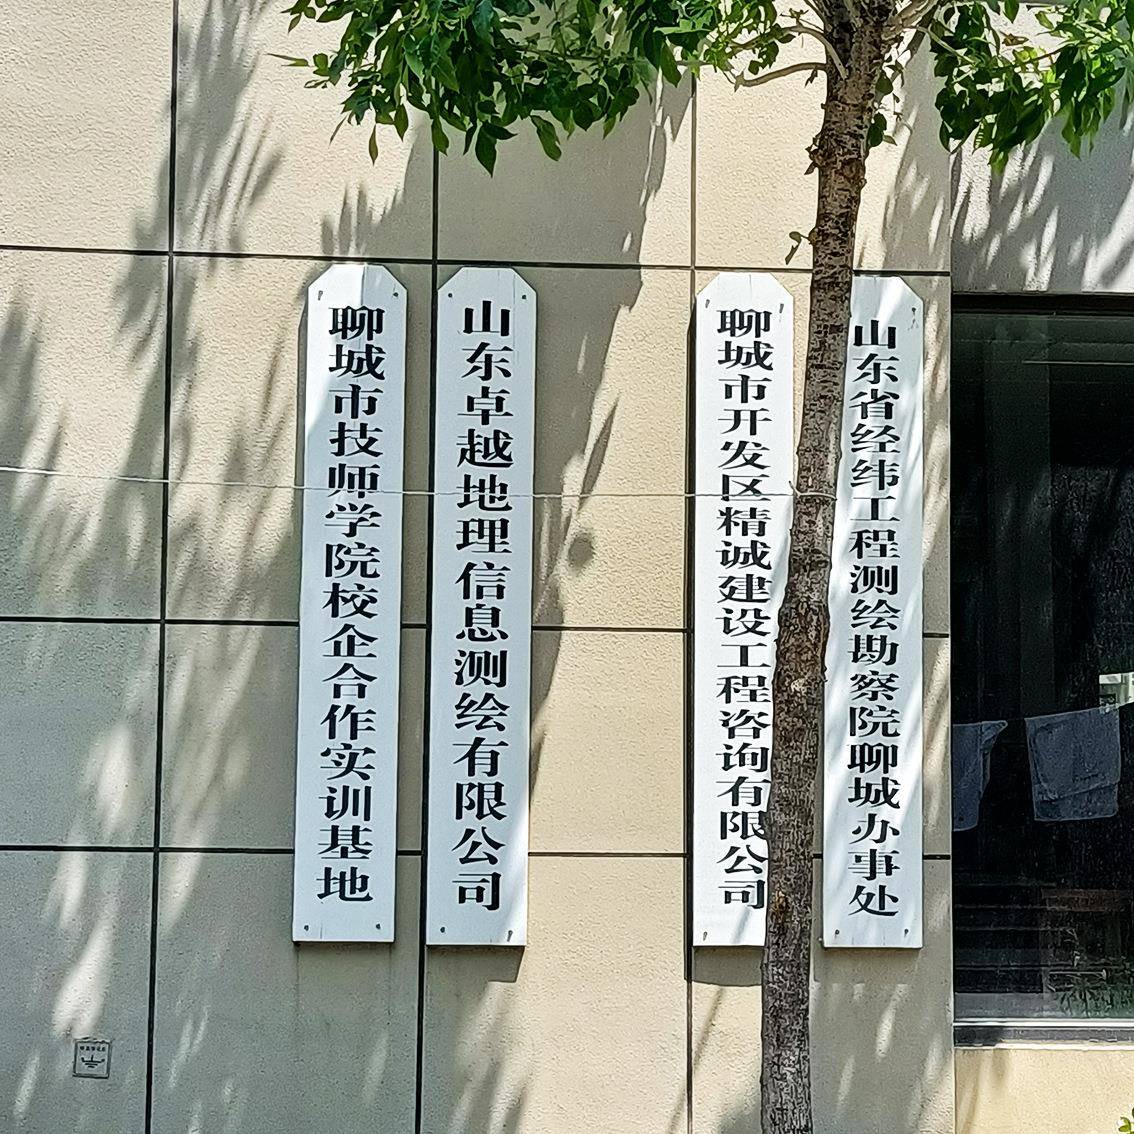 聊城市技师学院校企合作实训基地
山东卓越地理信息测绘有限公司
聊城市开发区精诚建设工程咨询有限公司
山东省经纬工程测绘勘察院聊城办事处